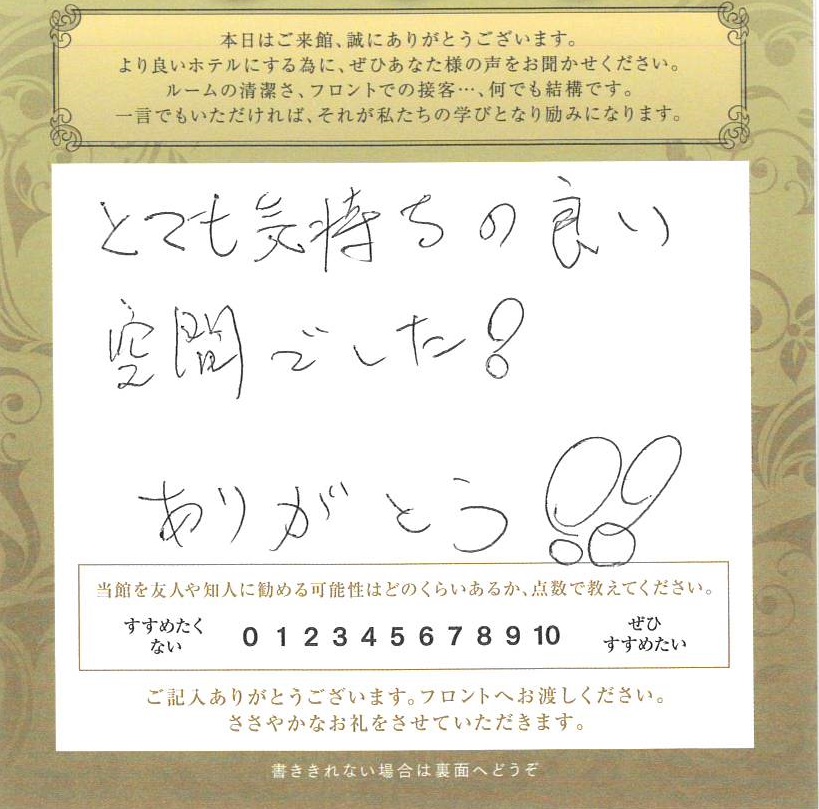 本日はご来館、誠にありがとうございます。
より良いホテルにする為に、ぜひあなた様の声をお聞かせください。
ルームの清潔さ、フロントでの接客…、何でも結構です。
一言でもいただければ、それが私たちの学びとなり励みになります。
とても気持ちの良い
空間でした!
ありがとう!!
当館を友人や知人に勧める可能性はどのくらいあるか、点数で教えてください。
すすめたく
ない
0 1 2 3 4 5 6 7 8 9 10
ぜひ
すすめたい
ご記入ありがとうございます。フロントへお渡しください。
ささやかなお礼をさせていただきます。
書ききれない場合は裏面へどうぞ